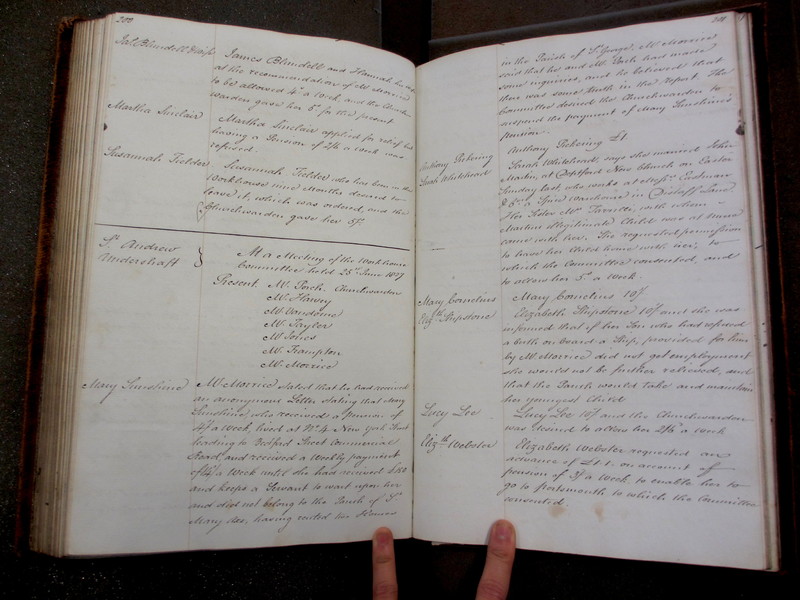 200
Jas. Blundell & Wife
James Blundell and Hannah his
at the recommendation of Mr Morrice
to be allowed 4/ a Week, and the Church
warden gave her 5/ for the present
Martha Sinclair
Martha Sinclair applied for relief but
having a Pension of 2/6 a week was
refused.
Susannah Fielder
Susannah Fielder who has been in the
Workhouse nine Months desired to
leave it, which was ordered, and the
Churchwarden gave her 5/.
St. Andrew
Undershaft
At a Meeting of the Workhouse
Committee held 25th June 1827
Present Mr. Porch Churchwarden
Mr. Harvey
Mr. Vandome
Mr. Tayler
Mr Jones
Mr. Frampton
Mr. Morrice
Mary Sunshine
Mr. Morrice stated that he had received
an anonymous Letter stating that Mary
Sunshine who received a Pension of
4/ a Week, lived at No. 4 New York Street
leading to Bedford Street Commercial
Road and received a Weekly payment
of a Week until she had received £100
and keeps a Servant to wait upon her
and did not belong to the Parish of St.
Mary Axe, having rented two Houses
201
in the Parish of St. George, Mr Morrice
said that he and Mr. Porch had made
some inquiries, and he believed that
there was some truth in the report. The
Committee desired the Churchwarden to
suspend the payment of Mary Sunshine's
pension.
Anthony Pickering
Anthony Pickering £1.
Sarah Whitehead
Sarah Whitehead, says she married John
Martin, at Deptford New Church on Easter
Sunday last who works at Messrs. Eastman
& Co. a Spice Warehouse in Lane
Her Sister Mrs. with whom
Martins illegitimate Child was at nurse
came with her. She requested permission
to have her Child home with her, to
which the Committee consented, and
to allow her 5/ a Week.
Mary Cornelius
Mary Cornelius 10/
Elizth. Shipstone
Elizabeth Shipstone 10/ and she was
informed that if her Son who had refused
a birth on board a Ship, provided for him
by Mr Morrice did not get employment
she would not be further relieved, and
that the Parish would take and maintain
her youngest Child
Lucy Lee
Lucy Lee 10/ and the Churchwarden
was desired to allow her 2/6 a Week
Elizth. Webster
Elizabeth Webster requested an
advance of £1.1. on account of
pension of 3/ a Week to enable her to
go to Portsmouth to which the Committee
consented.